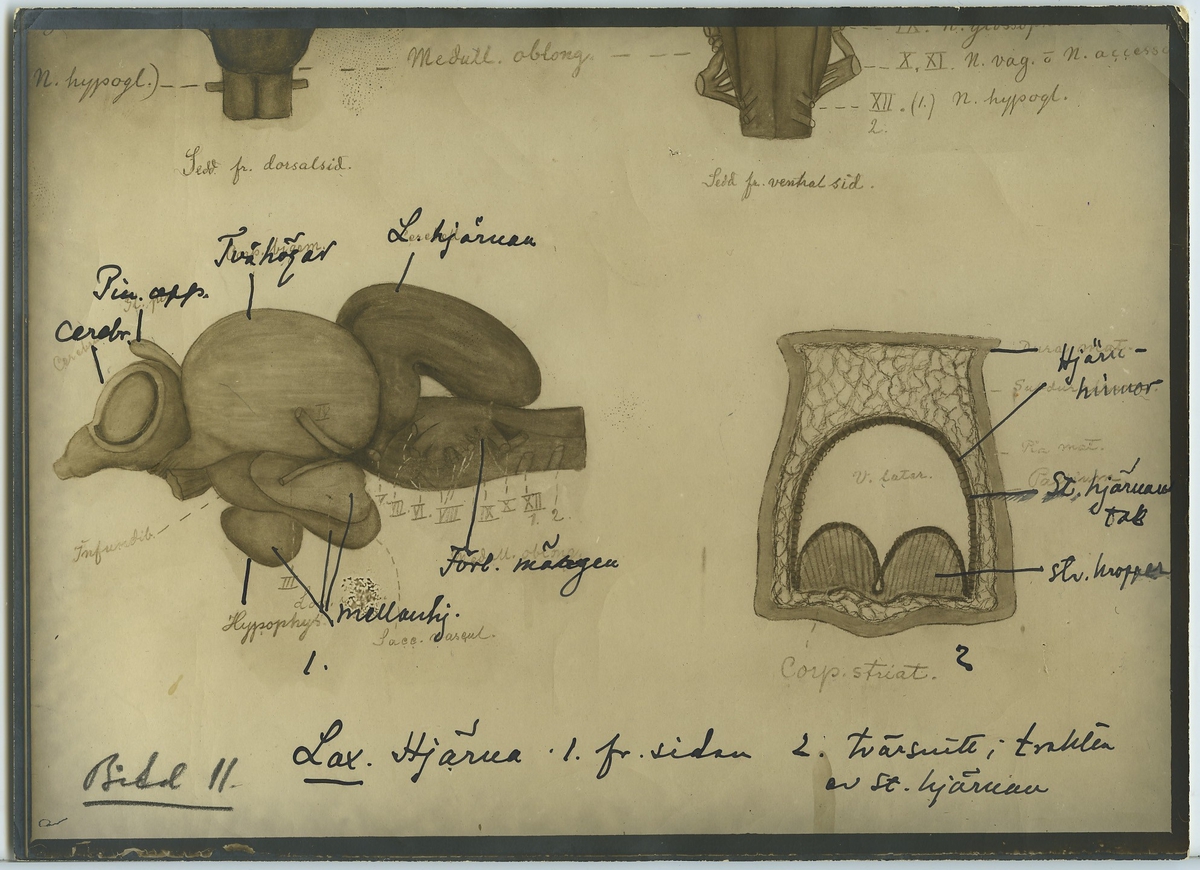 IX. N. glossop
N. hypogl.)
Medull. oblong.
X, XI. N. vag. o N. access
XII. (1.) N. hypogl.
2.
Sedd fr. dorsalsid.
Sedd fr. ventral sid.
L. hjärnan
Tvåhögar
Pin. app.
Cerebr.
Dura mat.
Hjärn-
hinnor
Pia mat.
IV
V. Later.
St. hjärnans
tak
V VII VI VIII IX X XII
1. 2.
Infundib.
Förl. märgen
Stv. kroppar
III
Hypophys.
mellanhj.
Sacc. vascul.
1.
2
Corp. striat.
Bild 11.
Lax. Hjärna 1. fr. sidan 2. tvärsnitt i trakten
av St. hjärnan